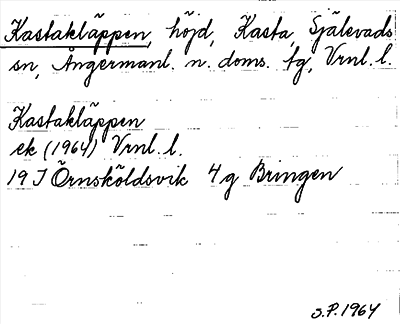 Kastakläppen, höjd, Kasta, Själevads
sn, Ångermanl. n. doms. tg, Vrnl. l.
Kastakläppen
ek (1964) Vrnl. l.
19 J Örnsköldsvik 4 g Bringen
S.P. 1964